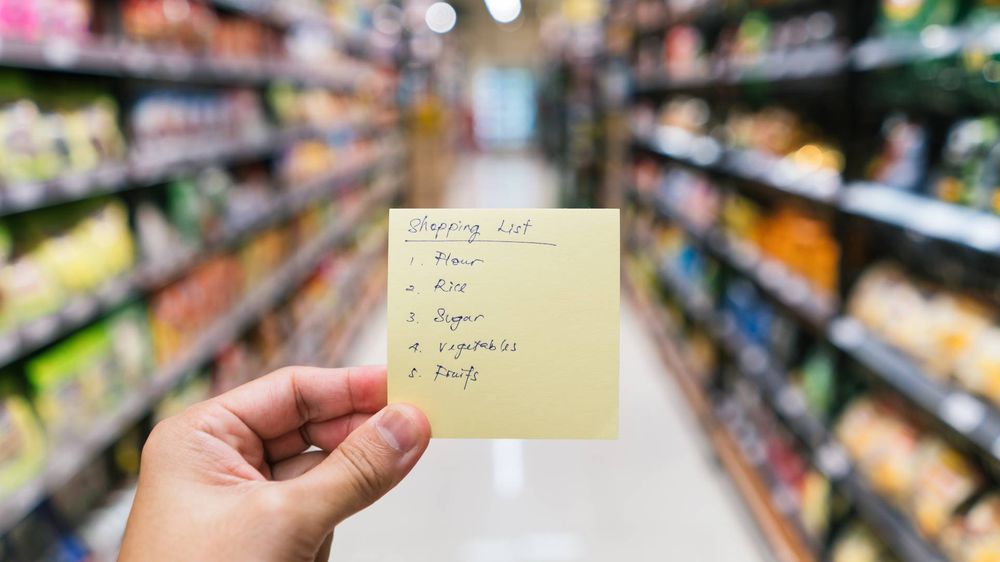 Shopping List
1. Flour
2. Rice
3. Sugar
4. Vegetables
5. Fruits